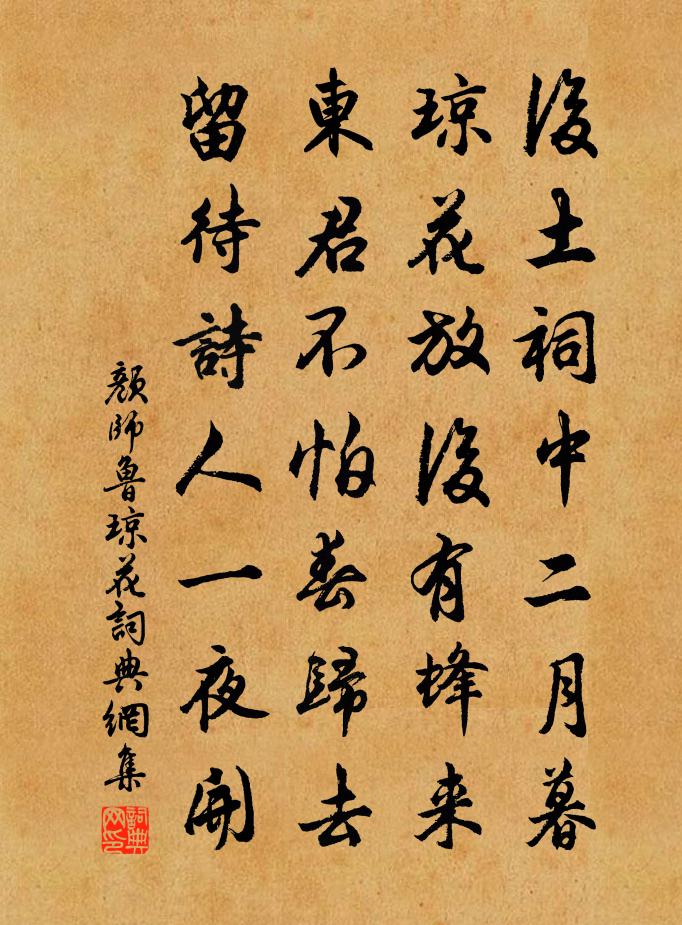 後土祠中二月暮
琼花放後有蜂来
東君不怕春歸去
留待詩人一夜開
顏師魯琼花詞典網集
詞典网印